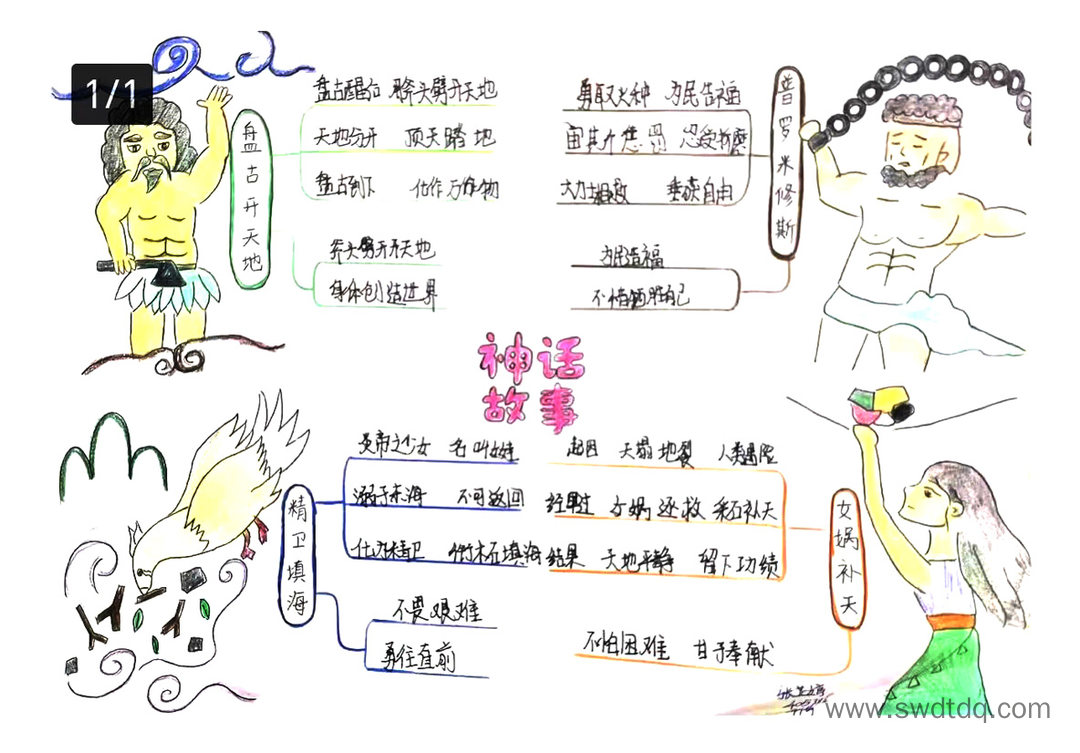 1/1
盘古开天地
盘古醒后 斧头劈开天地
天地分开 顶天踏地
盘古倒下 化作万物
斧头劈开天地
身体创造世界
普罗米修斯
勇取火种 为民造福
宙其大惩罚 忍受折磨
大力士相救 重获自由
为民造福
不怕牺牲自己
神话
故事
精卫填海
炎帝之女 名叫女娃
溺于东海 不可返回
化为精卫 衔木石填海
不畏艰难
勇往直前
女娲补天
起因 天塌地裂 人类遇险
经过 女娲拯救 彩石补天
结果 天地平静 留下功绩
不怕困难 甘于奉献
www.swdtdq.com